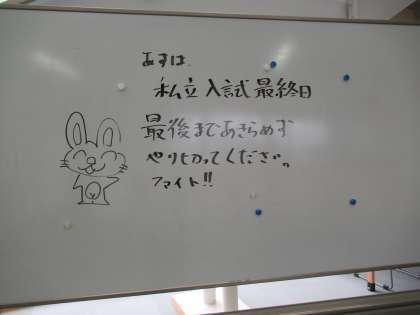 あすは、
私立入試最終日
最後まであきらめず
やりきってください。
ファイト!!